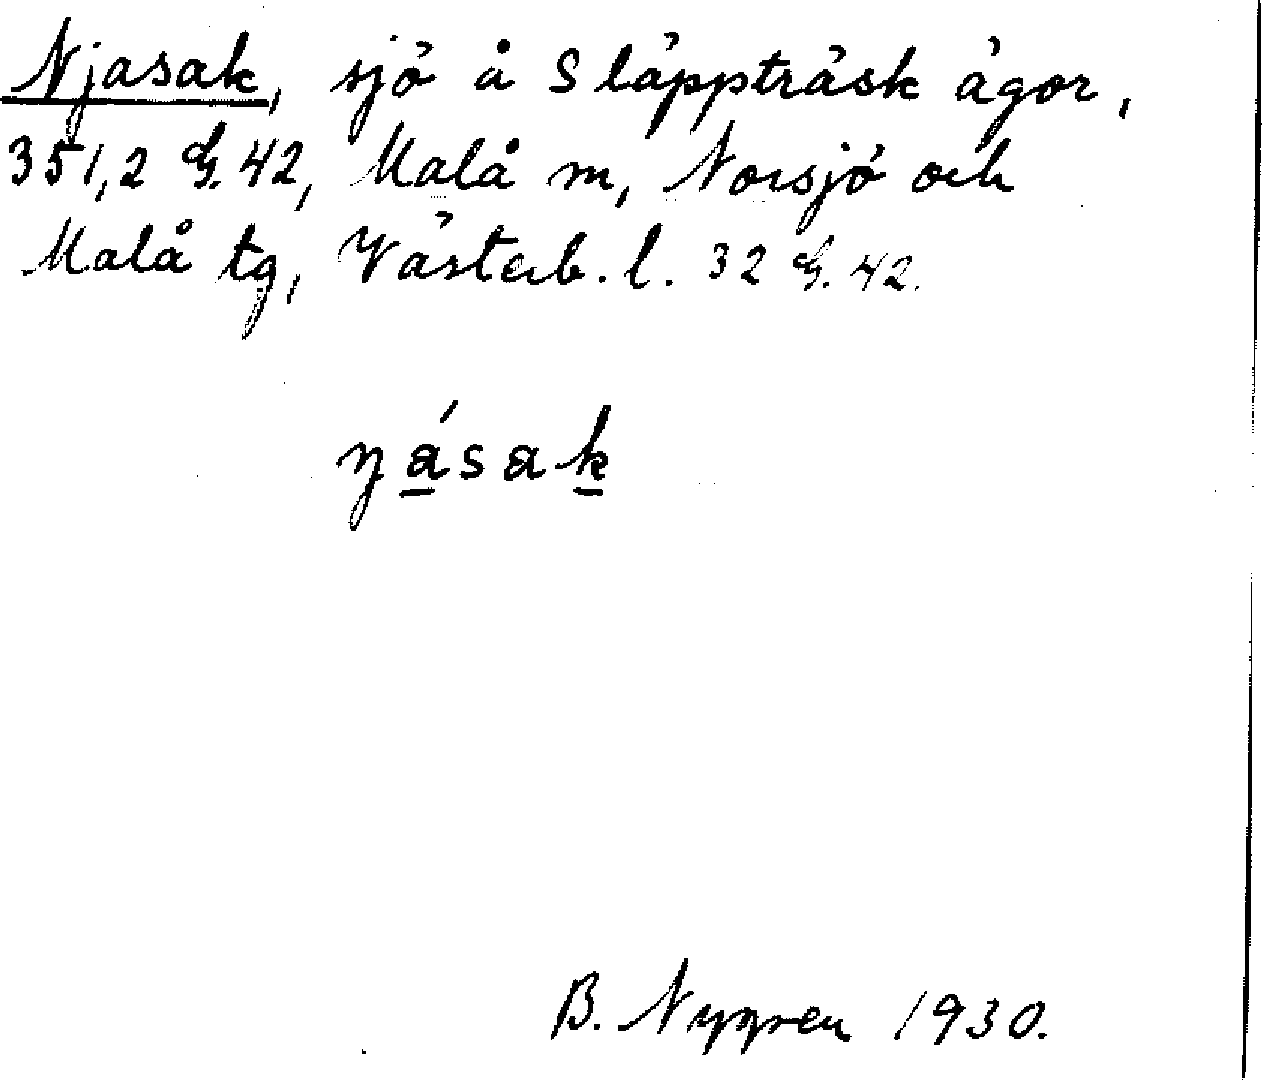 Njasak, sjö å Släppträsk ägor,
351,2 G.42, Malå m, Norsjö och
Malå tg, Västerb. l. 32 G. 42.
ŋásak
B. Nygren 1930.